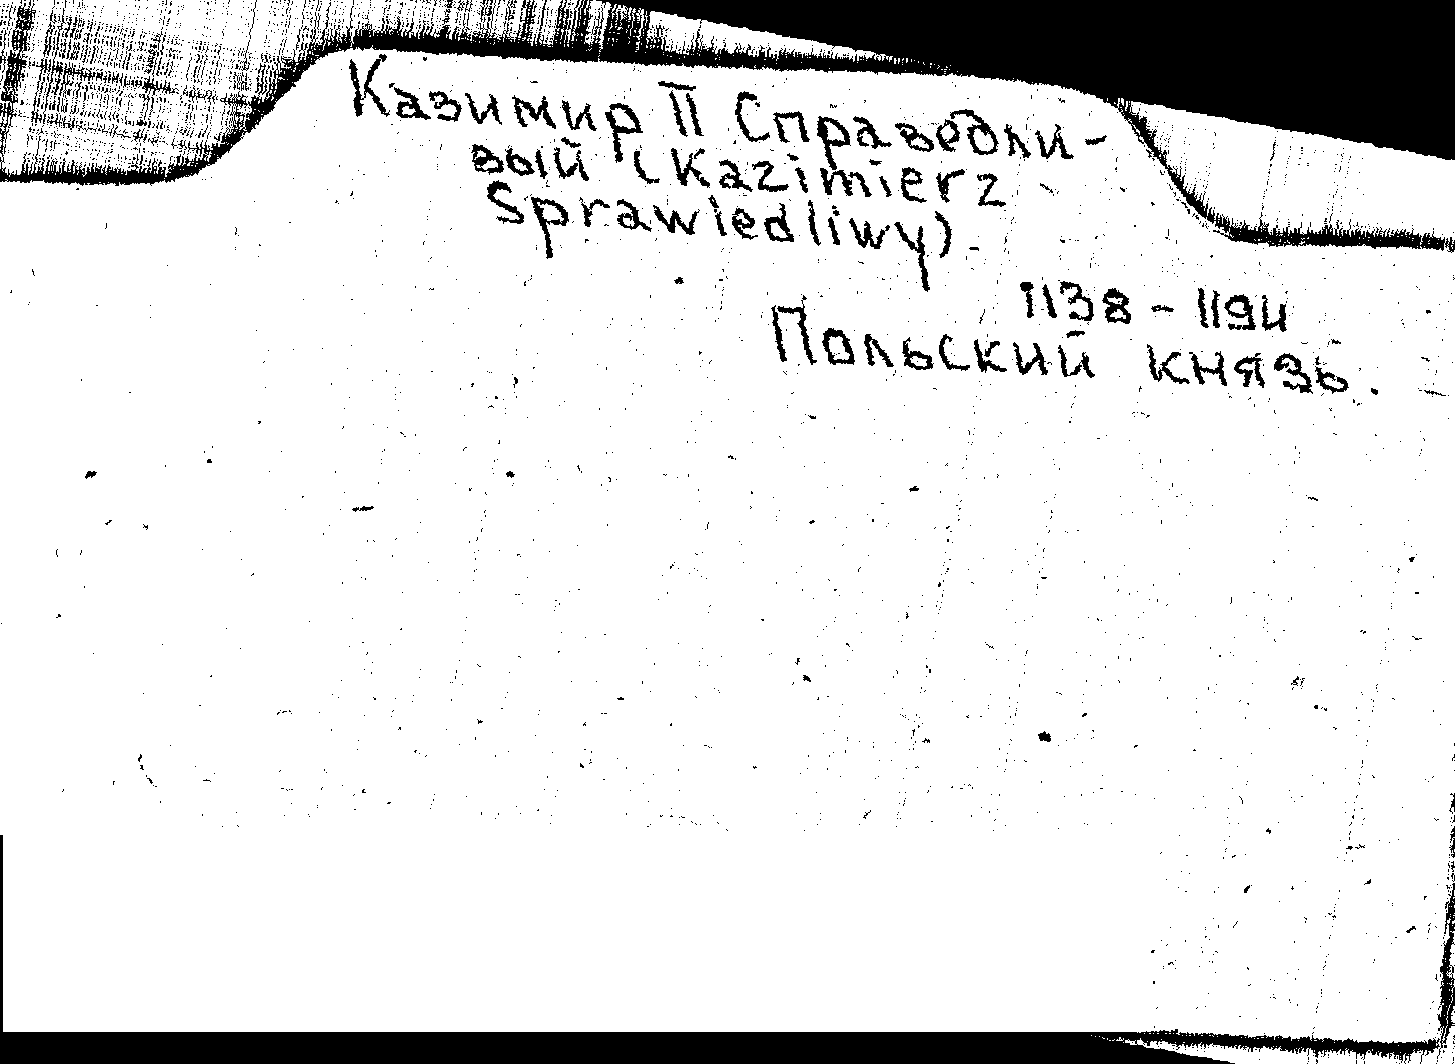 Казимир II Справедли-
вый (Kazimierz
Sprawiedliwy).
1138 - 1194
Польский князь.